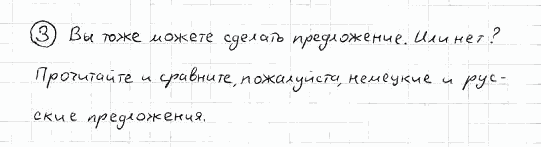 ③ Вы тоже можете сделать предложение. Или нет?
Прочитайте и сравните, пожалуйста, немецкие и рус-
ские предложения.